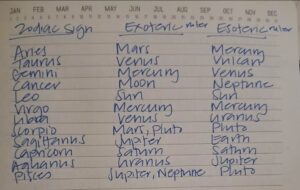 JAN FEB MAR APR MAY JUN JUL AUG SEP OCT NOV DEC
Zodiac Sign Exoteric ruler Esoteric ruler
Aries Mars Mercury
Taurus Venus Vulcan
Gemini Mercury Venus
Cancer Moon Neptune
Leo Sun Sun
Virgo Mercury Mercury
Libra Venus Uranus
Scorpio Mars, Pluto Pluto
Sagittarius Jupiter Earth
Capricorn Saturn Saturn
Aquarius Uranus Jupiter
Pisces Jupiter, Neptune Pluto